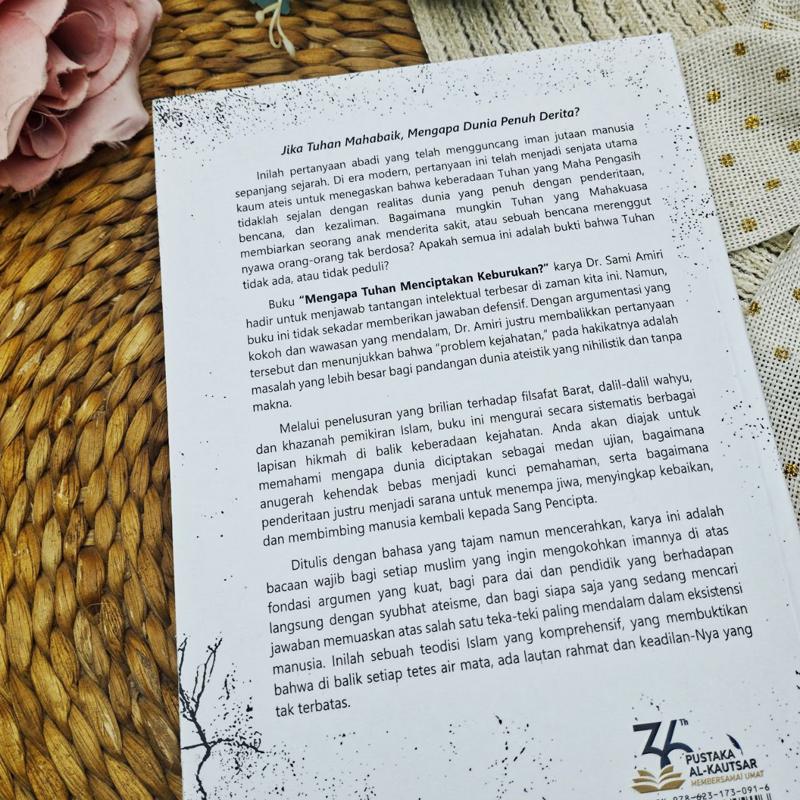 Jika Tuhan Mahabaik, Mengapa Dunia Penuh Derita?
Inilah pertanyaan abadi yang telah mengguncang iman jutaan manusia
sepanjang sejarah. Di era modern, pertanyaan ini telah menjadi senjata utama
kaum ateis untuk menegaskan bahwa keberadaan Tuhan yang Maha Pengasih
tidaklah sejalan dengan realitas dunia yang penuh dengan penderitaan,
bencana, dan kezaliman. Bagaimana mungkin Tuhan yang Mahakuasa
membiarkan seorang anak menderita sakit, atau sebuah bencana merenggut
nyawa orang-orang tak berdosa? Apakah semua ini adalah bukti bahwa Tuhan
tidak ada, atau tidak peduli?
Buku “Mengapa Tuhan Menciptakan Keburukan?” karya Dr. Sami Amiri
hadir untuk menjawab tantangan intelektual terbesar di zaman kita ini. Namun,
buku ini tidak sekadar memberikan jawaban defensif. Dengan argumentasi yang
kokoh dan wawasan yang mendalam, Dr. Amiri justru membalikkan pertanyaan
tersebut dan menunjukkan bahwa “problem kejahatan,” pada hakikatnya adalah
masalah yang lebih besar bagi pandangan dunia ateistik yang nihilistik dan tanpa
makna.
Melalui penelusuran yang brilian terhadap filsafat Barat, dalil-dalil wahyu,
dan khazanah pemikiran Islam, buku ini mengurai secara sistematis berbagai
lapisan hikmah di balik keberadaan kejahatan. Anda akan diajak untuk
memahami mengapa dunia diciptakan sebagai medan ujian, bagaimana
anugerah kehendak bebas menjadi kunci pemahaman, serta bagaimana
penderitaan justru menjadi sarana untuk menempa jiwa, menyingkap kebaikan,
dan membimbing manusia kembali kepada Sang Pencipta.
Ditulis dengan bahasa yang tajam namun mencerahkan, karya ini adalah
bacaan wajib bagi setiap muslim yang ingin mengokohkan imannya di atas
fondasi argumen yang kuat, bagi para dai dan pendidik yang berhadapan
langsung dengan syubhat ateisme, dan bagi siapa saja yang sedang mencari
jawaban memuaskan atas salah satu teka-teki paling mendalam dalam eksistensi
manusia. Inilah sebuah teodisi Islam yang komprehensif, yang membuktikan
bahwa di balik setiap tetes air mata, ada lautan rahmat dan keadilan-Nya yang
tak terbatas.
36 Th
PUSTAKA
AL-KAUTSAR
MEMBERSAMAI UMAT
978-623-173-091-6